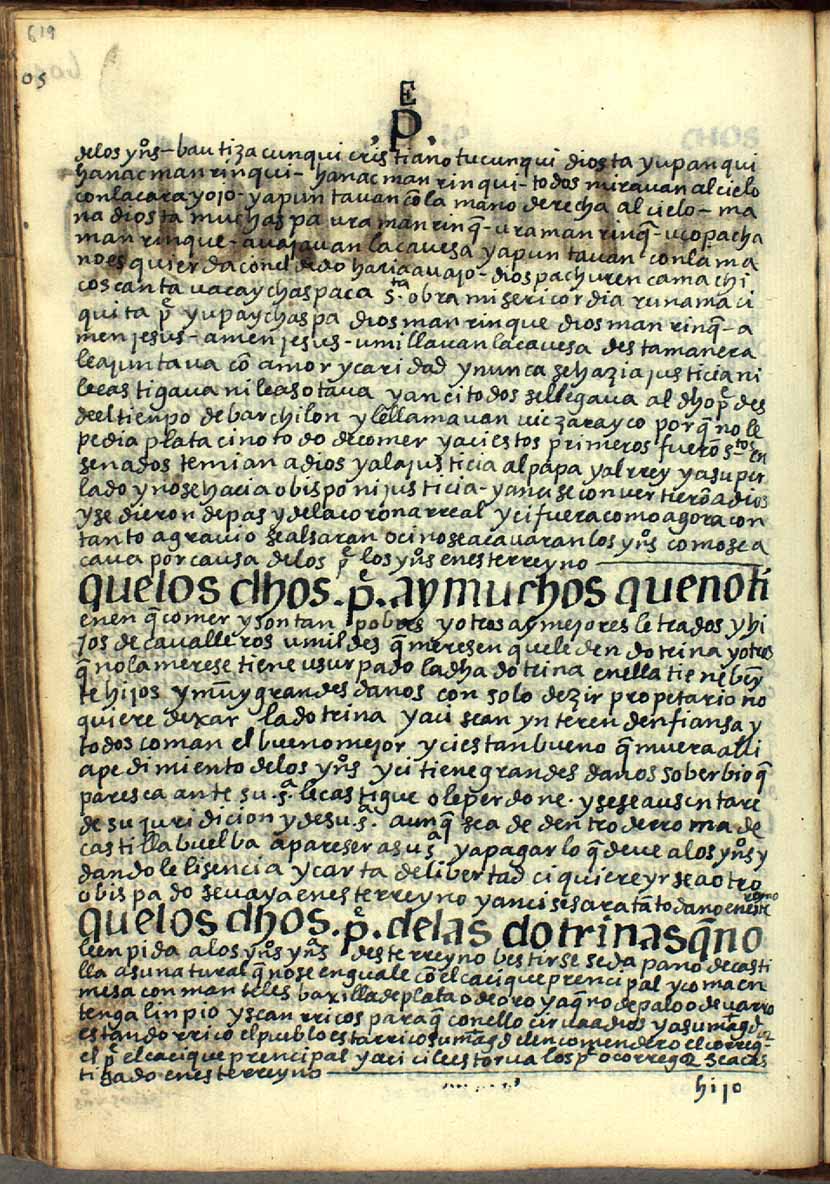 619
05
E
.p̃.
delos yn̄s - bautiza cunqui cristiano tucunqui diosta yupanqui
hanacman rinqui - hanacman rinqui - todos miravan al cielo
con la cara y ojo - y apuntavan cō la mano derecha al cielo - ma
na diosta muchaspa uraman rinq̄ - uraman rinq̄ - ucopacha
man rinque - avajavan la cavesa y apuntavan con la ma
no esquierda con el dedo haria avajo - dios pachuren camachi
coscanta vacaychaspaca s.ta obra misericordia runama ci
quita p̃ yupaychaspa dios man rinque dios man rinq̄ - a
men jesus - amen jesus - umillavan la cavesa desta manera
le ajuntava cō amor y caridad y nunca se hazia justicia ni
le castigava ni le asotava y anci todos se llegava al dho p̃ des
deel tienpo de barchilon y le llamavan vic zarayco por q̄ no le
pedia plata cino todo de comer y aci estos primeros fuerō s.tos en
senados temian a dios y a la justicia al papa y al rrey y a su per
lado y no se hacia obispo ni justicia - y anci se convertierō a dios
y se dieron de pas y de la corona rreal y ci fuera como agora con
tanto agravio se alsaran o cino se acavaran los yn̄s como se a
cava por causa de los p̃ los yn̄s en este rreyno
que los dhos .p̃. ay muchos que no ti
enen q̄ comer y son tan pobres y otros ay mejores letrados y hi
jos de cavalleros umildes q̄ meresen que le den dotrina y otros
q̄ no la merese tiene usurpado la dha dotrina en ella tiene bey
te hijos y muy grandes danos con solo dezir propetario no
quiere dexar la dotrina y aci sean ynteren den fiansa y
todos coman el bueno mejor y ci es tan bueno q̄ muera alli
a pedimiento de los yn̄s y ci tiene grandes danos soberbio q̄
paresca ante su .s.a le castigue o le perdone - y se se ausentare
de su juridicion y de su s.a aunq̄ sea de dentro de rroma de
castilla buelba a pareser a su s.a y a pagar lo q̄ deve a los yn̄s y
dandole lisencia y carta de libertad ci quiere yrse a otro
obispado se vaya en este rreyno y anci sesara tāto dano en este
rreyno
que los dhos .p̃. de las dotrinas q̄ no
le enpida a los yn̄s yn̄as deste rreyno bestirse seda pano de casti
lla a su natural q̄ no se enguale cō el cacique prencipal y coma en
mesa con manteles baxilla de plata o de oro y a q̄ no de palo o de varro
tenga linpio y sean rricos para q̄ con ello cirva a dios y a su mag.d
estando rrico el pueblo estar rico su mag.d el encomendero el correg.or
el p̃ el cacique prencipal y aci ci le estorva los p̃ o corregor sea cas
tigado en este rreyno
hijo